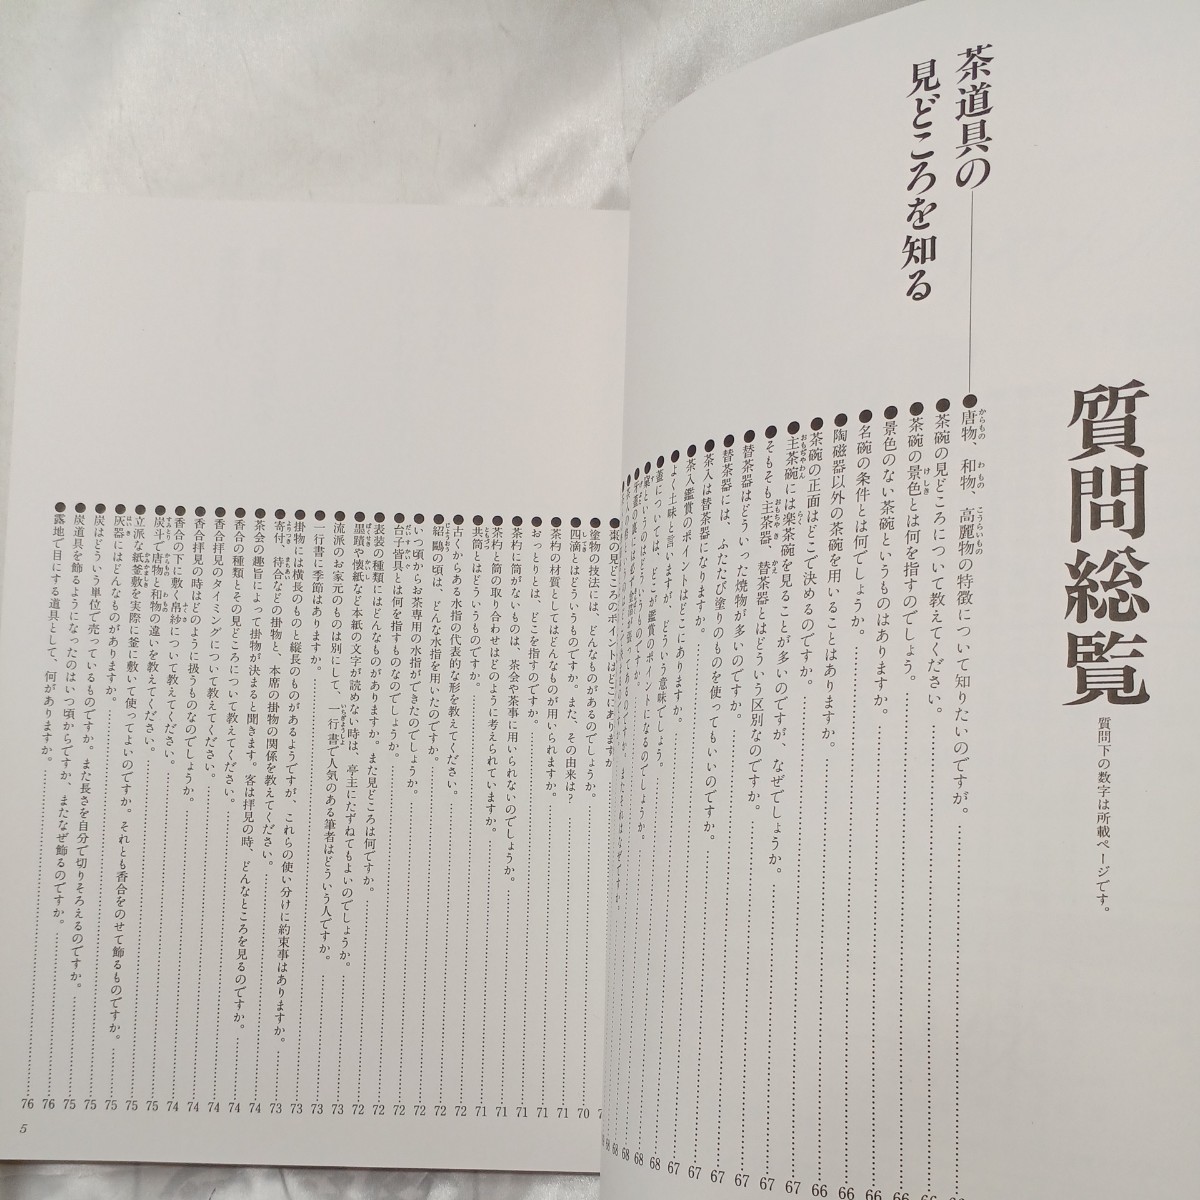 質問総覧
質問下の数字は所載ページです。
茶道具の
見どころを知る
●唐物、和物、高麗物の特徴について知りたいのですが。
●茶碗の見どころについて教えてください。66
●茶碗の景色とは何を指すのでしょう。66
●景色のない茶碗というものはありますか。66
●名碗の条件とは何でしょうか。66
●陶磁器以外の茶碗を用いることはありますか。66
●茶碗の正面はどこで決めるのですか。66
●主茶碗には楽茶碗を見ることが多いのですが、なぜでしょうか。67
●そもそも主茶器、替茶器とはどういう区別なのですか。67
●替茶器はどういった焼物が多いのですか。67
●替茶器には、ふたたび塗りのものを使ってもいいのですか。67
●茶入は替茶器になりますか。67
●茶入鑑賞のポイントはどこにありますか。67
●よく土味と言いますが、どういう意味でしょう。67
●蓋については、どこが鑑賞のポイントになるのでしょうか。68
●棗の見どころのポイントはどこにありますか
●塗物の技法には、どんなものがあるのでしょうか。70
●四滴とはどういうものですか。また、その由来は？71
●茶杓の材質としてはどんなものが用いられますか。71
●おっとりとは、どこを指すのですか。71
●茶杓に筒がないものは、茶会や茶事に用いられないのでしょうか。71
●茶杓と筒の取り合わせはどのように考えられていますか。71
●共筒とはどういうものですか。71
●古くからある水指の代表的な形を教えてください。72
●紹鷗の頃は、どんな水指を用いたのですか。72
●いつ頃からお茶専用の水指ができたのでしょうか。72
●台子皆具とは何を指すものなのでしょうか。72
●表装の種類にはどんなものがありますか。また見どころは何ですか。72
●墨蹟や懐紙など本紙の文字が読めない時は、亭主にたずねてもよいのでしょうか。72
●流派のお家元のものは別にして、一行書で人気のある筆者はどういう人ですか。73
●一行書に季節はありますか。73
●掛物には横長のものと縦長のものがあるようですが、これらの使い分けに約束事はありますか。73
●寄付、待合などの掛物と、本席の掛物の関係を教えてください。73
●茶会の趣旨によって掛物が決まると聞きます。客は拝見の時、どんなところを見るのですか。74
●香合の種類とその見どころについて教えてください。74
●香合拝見のタイミングについて教えてください。74
●香合拝見の時はどのように扱うものなのでしょうか。74
●香合の下に敷く帛紗について教えてください。74
●炭斗で唐物と和物の違いを教えてください。75
●立派な紙釜敷を実際に釜に敷いて使ってよいのですか。それとも香合をのせて飾るものですか。75
●灰器にはどんなものがありますか。75
●炭はどういう単位で売っているものですか。また長さを自分で切りそろえるのですか。75
●炭道具を飾るようになったのはいつ頃からですか、またなぜ飾るのですか。76
●露地で目にする道具として、何がありますか。76
5